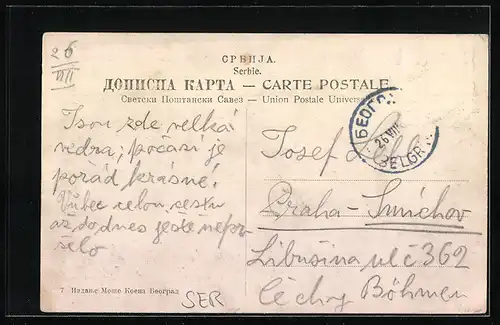 26
VII
СРБИЈА.
Serbie.
ДОПИСНА КАРТА — CARTE POSTALE
Светски Поштански Савез — Union Postale Universelle
Jsou zde velká
vedra; počasí je
pořád krásné!
Vůbec celou cestu
až do dnes ještě nepr-
šelo
БЕОГР
26 VII
BELGR
Josef
Praha-Smíchov
Libušina ul č 362
Čechy Böhmen
7 Издање Моше Коена Београд
SER